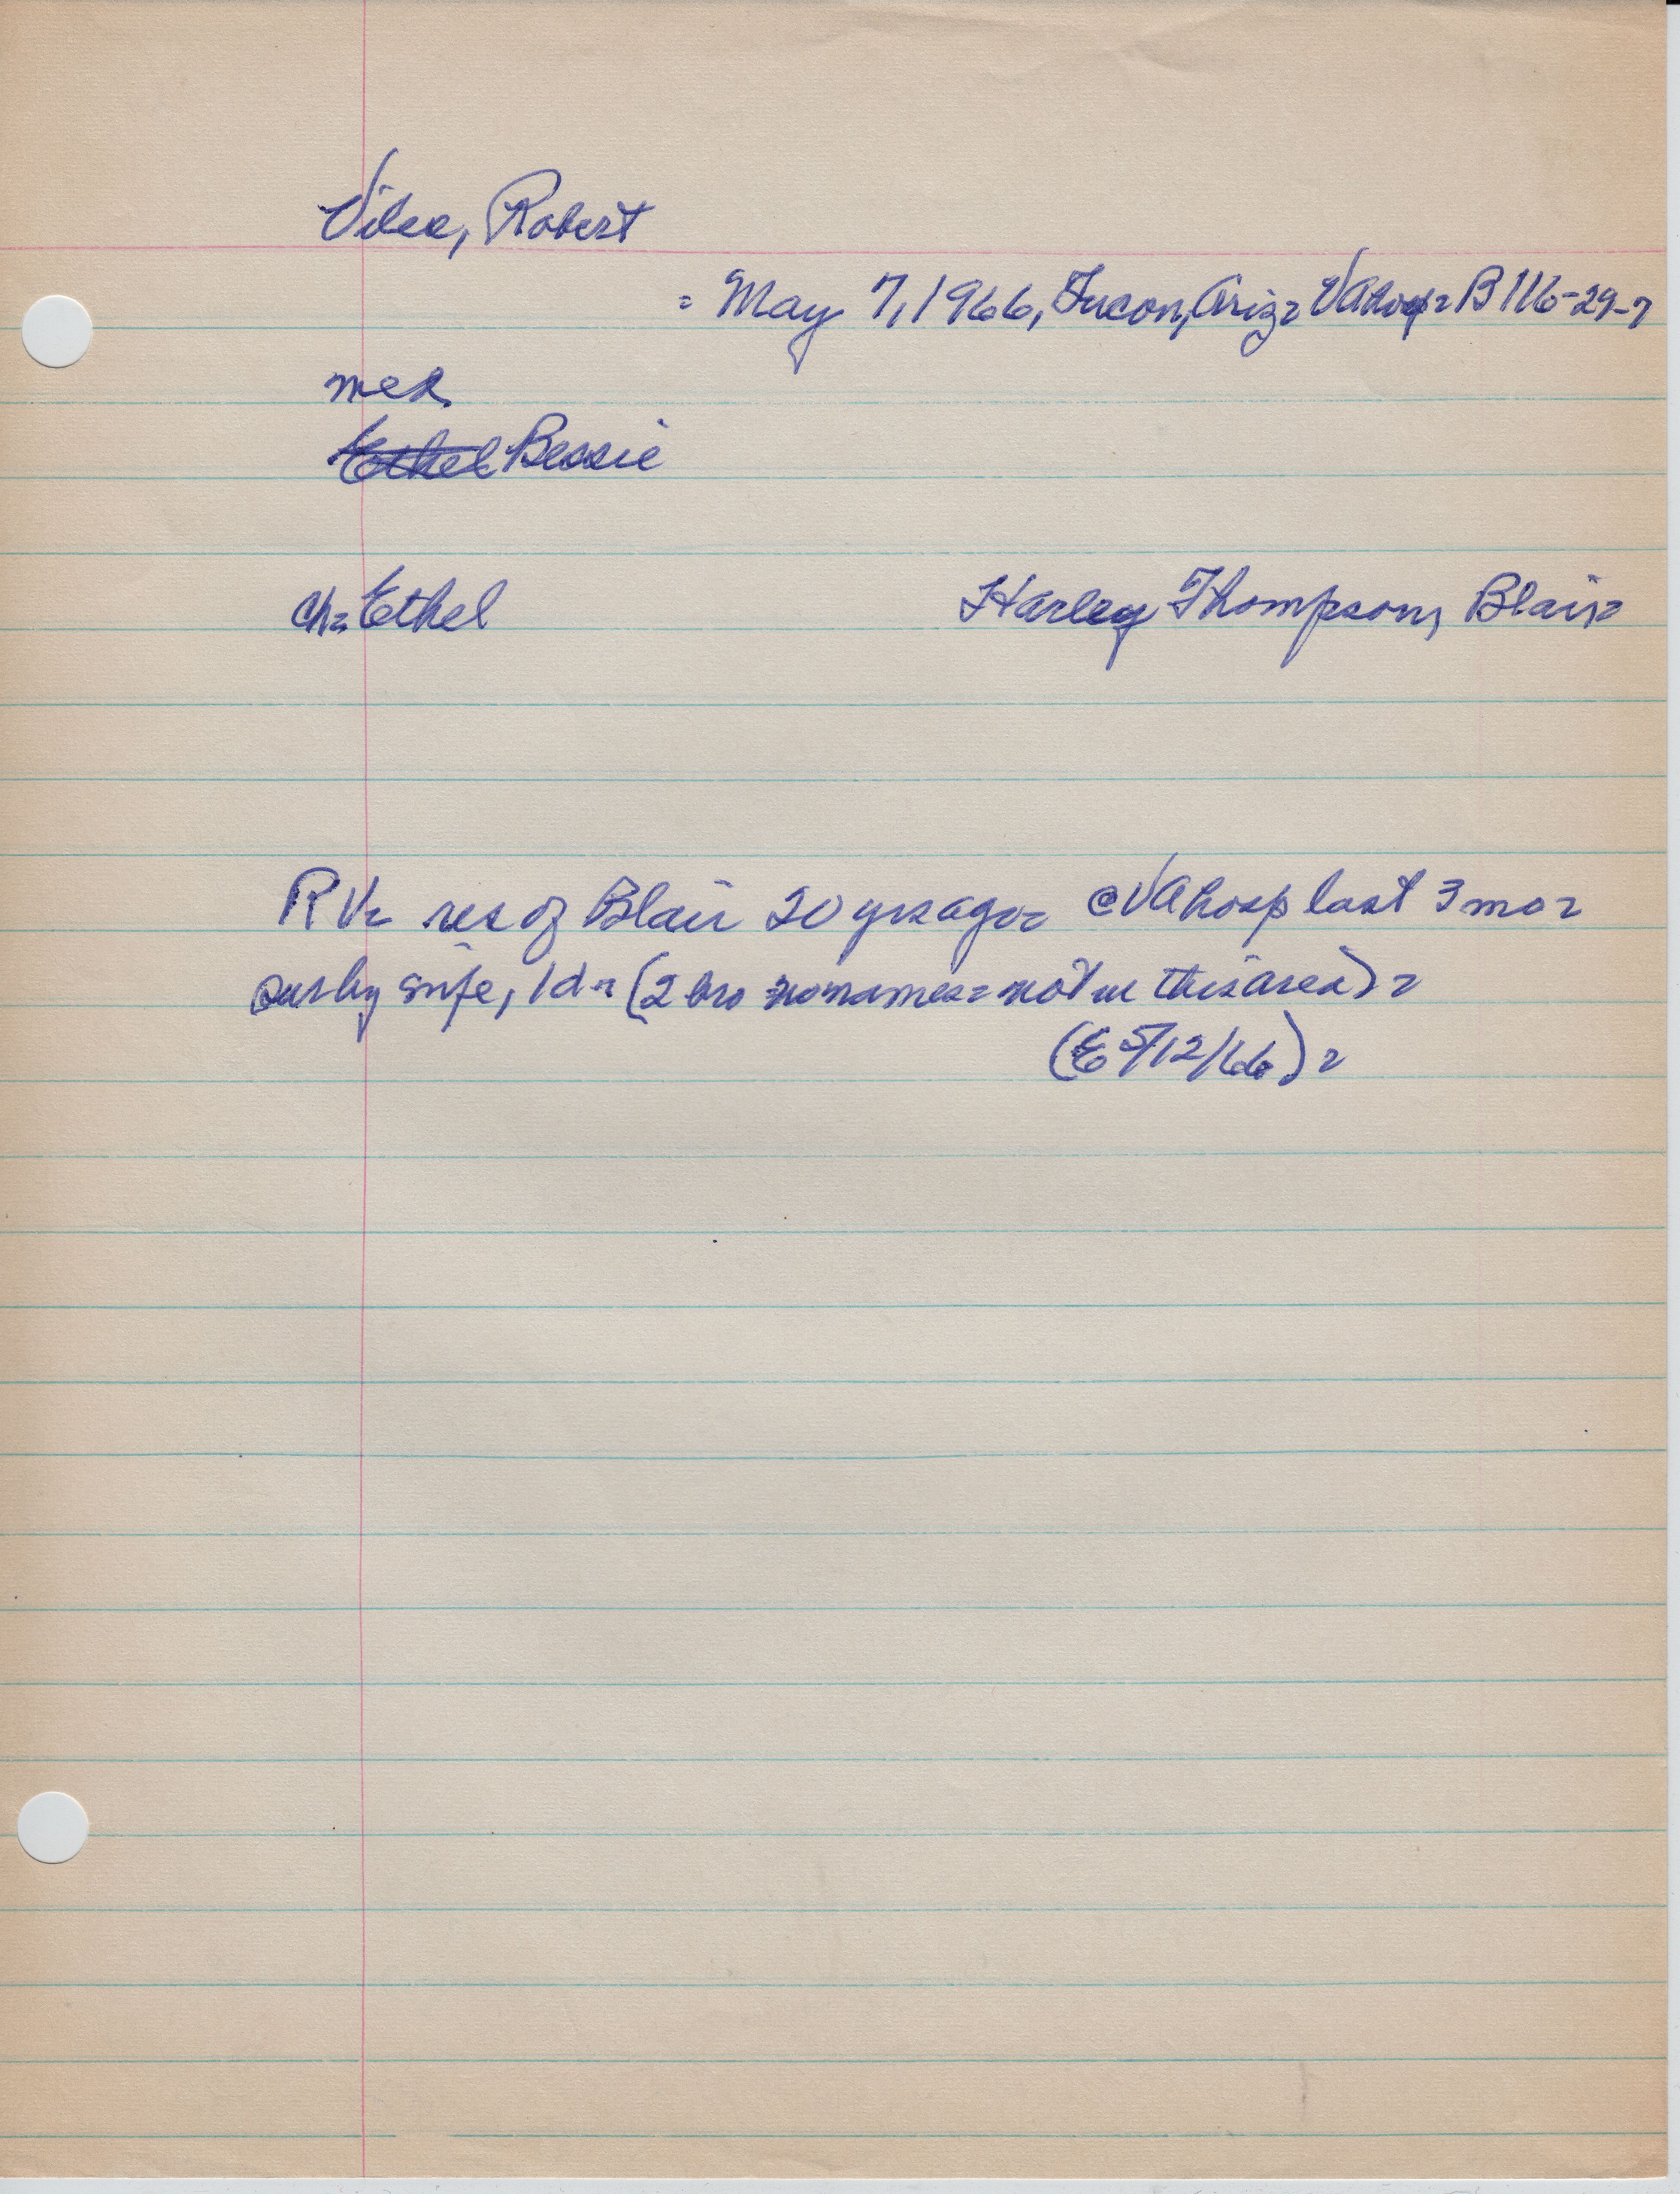 Vilee, Robert
= May 7, 1966, Tucson, Ariz = VA hosp = B 116-29-7
med.
Ethel Bessie
ch = Ethel Harley Thompson, Blair =
RV = res of Blair 20 yrs ago = @ VA hosp last 3 mo =
sur by wife, 1 d = (2 bro no names = not in this area) =
(E 5/12/66) =